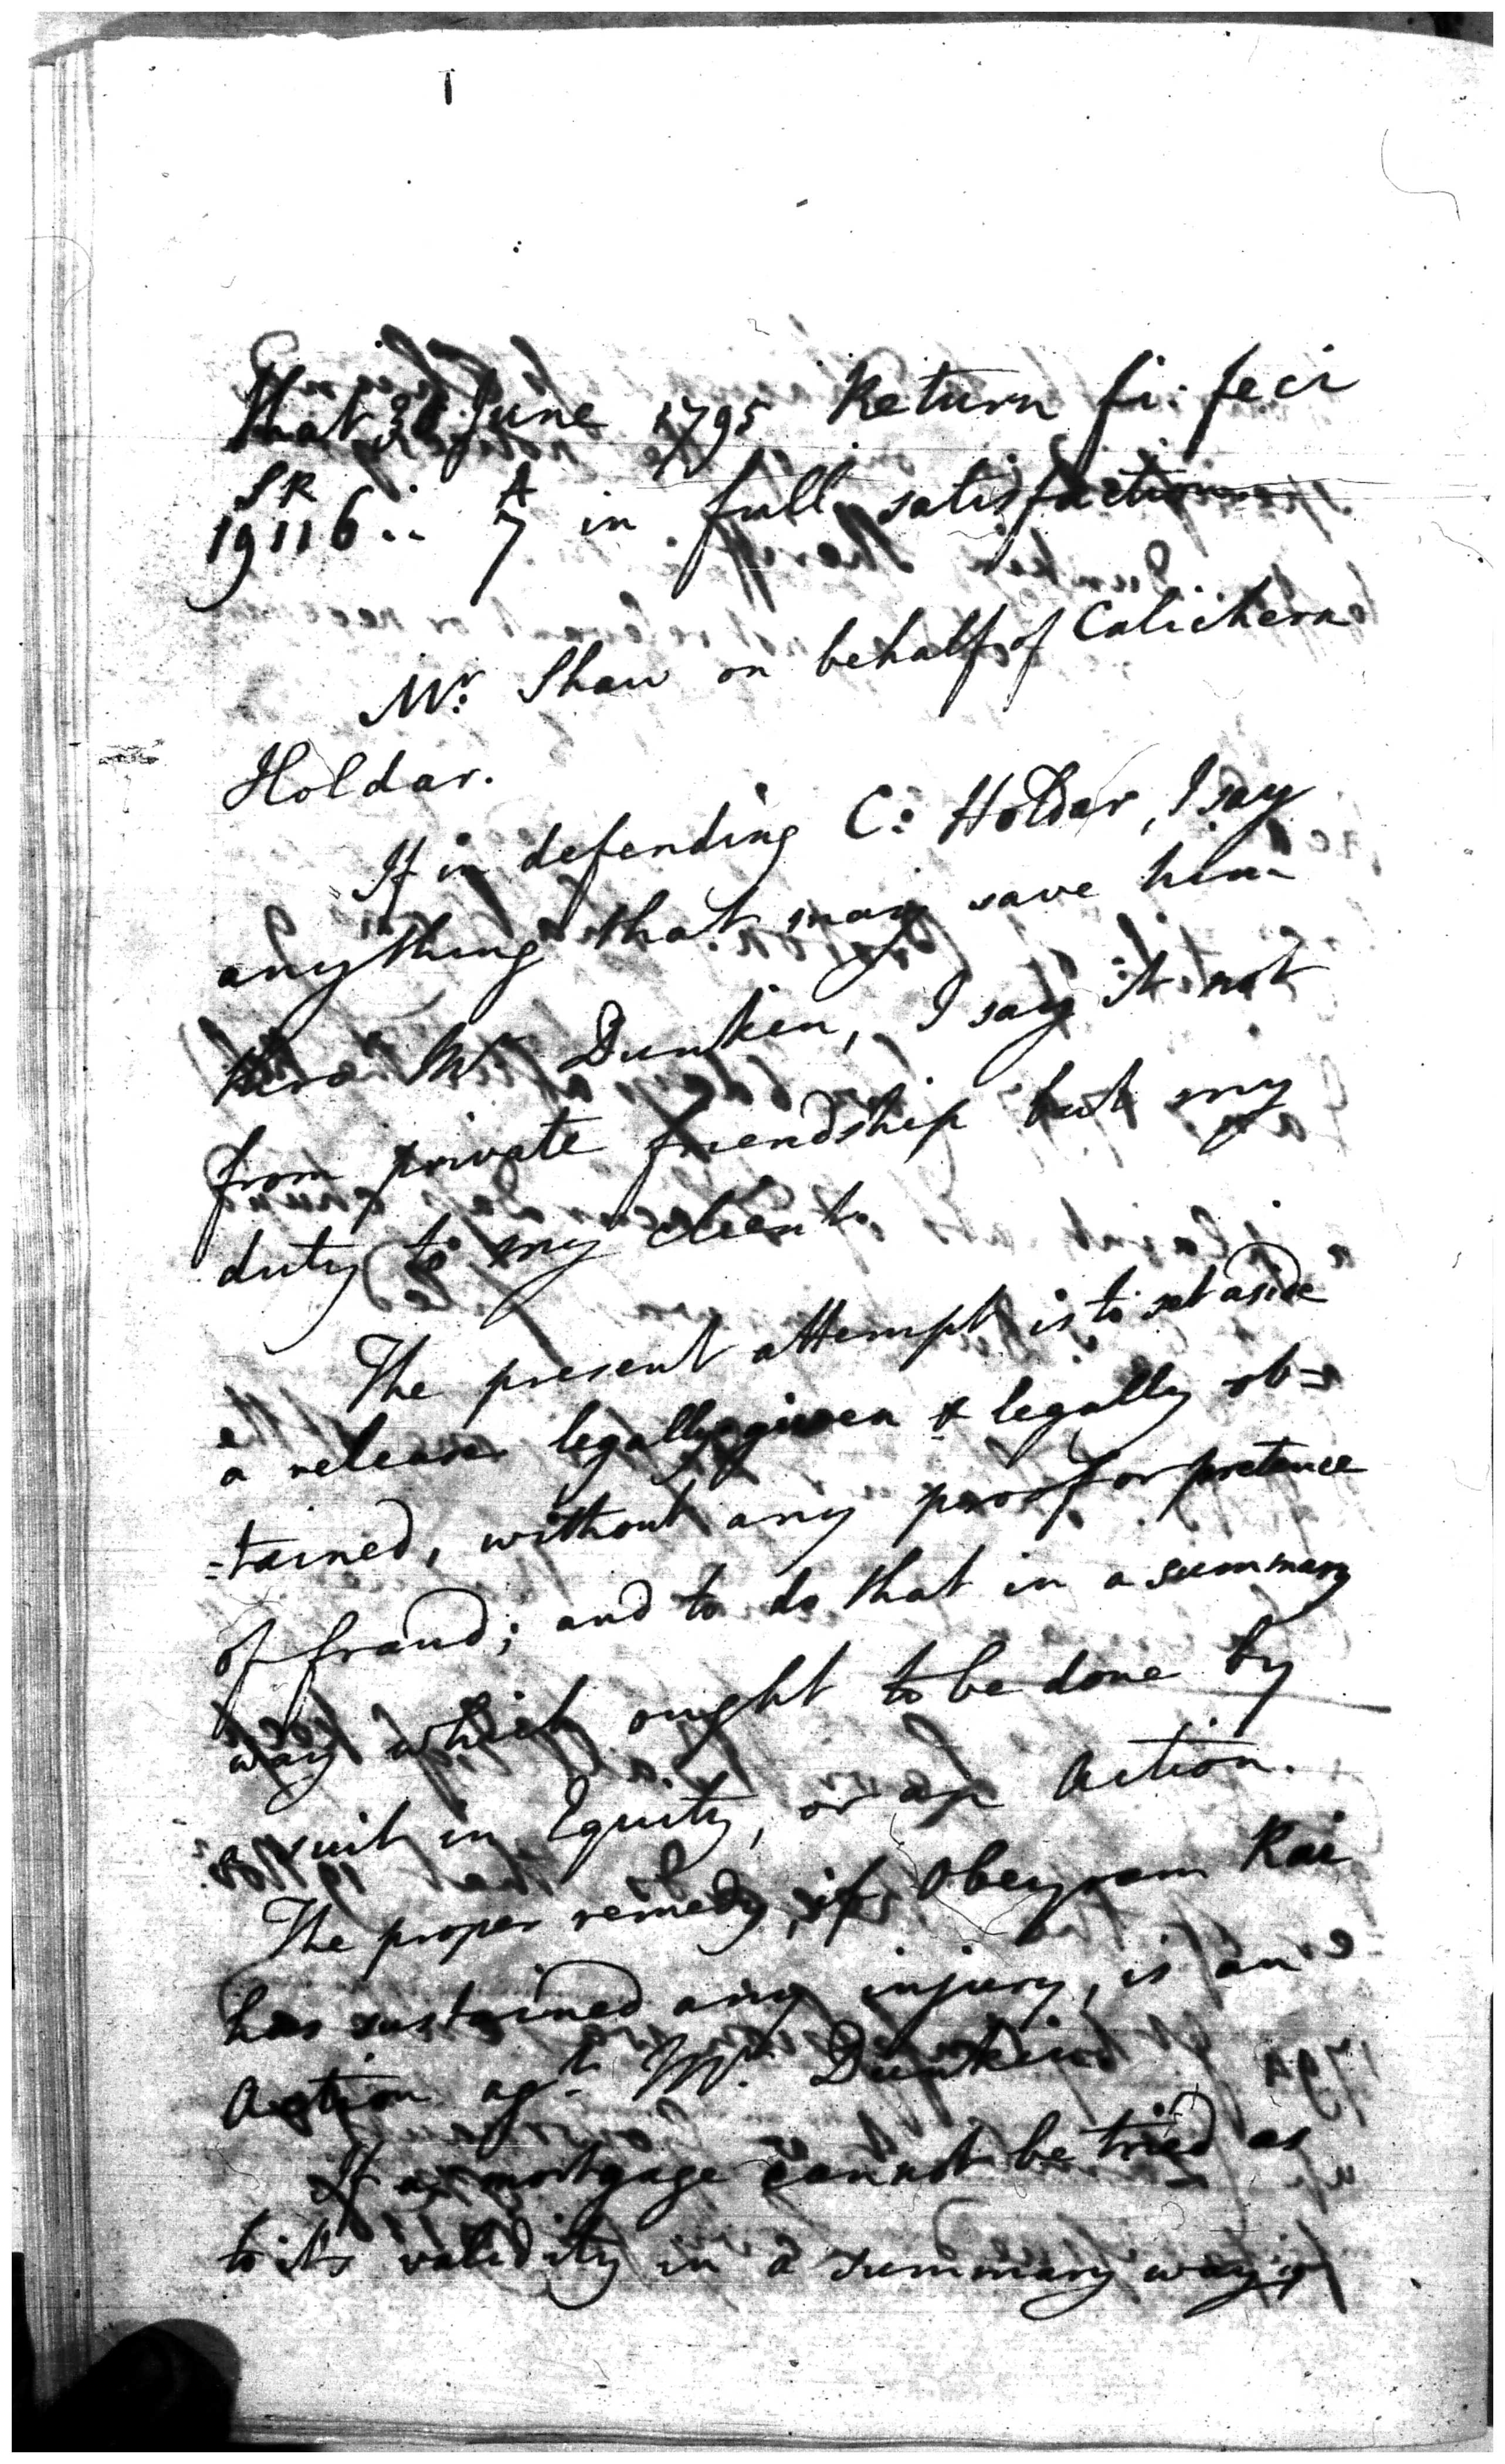 That 30 June 1795 Return fi: feci
SR A
19116 .. 7 in full satisfaction
Mr. Shaw on behalf of Calichern
Holdar.
If in defending C: Holdar, I say
anything that may save him
Mr Dunkin, I say it not
from private friendship but my
duty to my client.
The present attempt is to set aside
a release legally given & legally ob=
=tained, without any proof or pretence
of fraud; and to do that in a summary
way which ought to be done by
a suit in Equity, or an Action.
The proper remedy, if Obeyram Rai
has sustained any injury, is an
Action agt. Mr. Dunkin
If a mortgage cannot be tried as
to it's validity in a summary way,